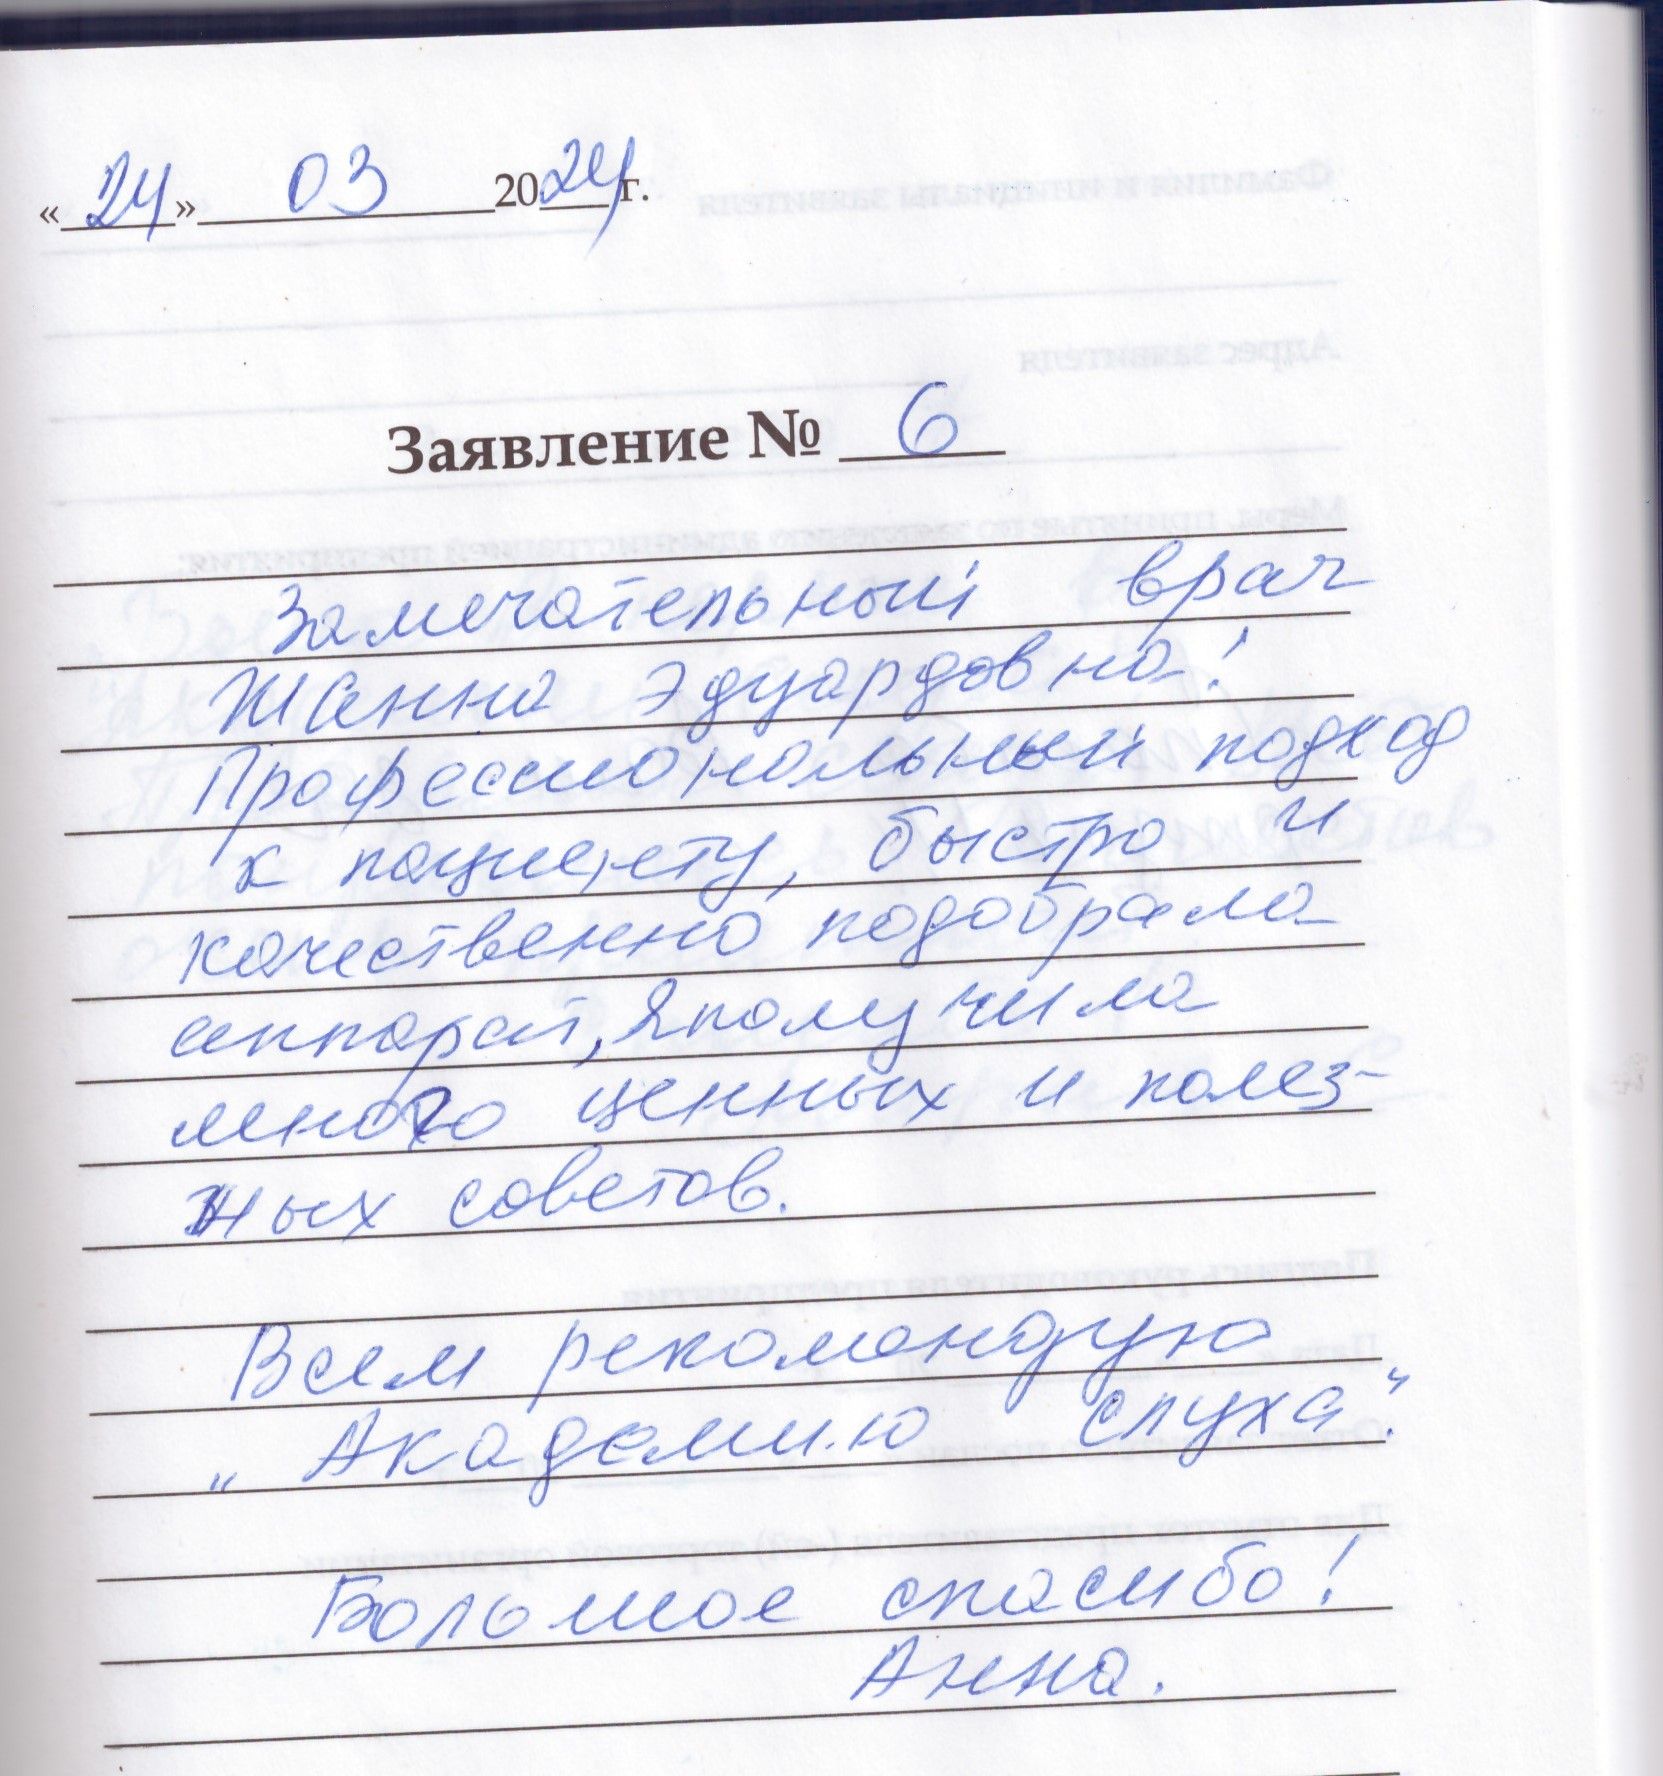 «24» 03 2024 г.
Заявление № 6
Замечательный врач
Жанна Эдуардовна!
Профессиональный подход
к пациенту, быстро и
качественно подобрала
аппарат, Я получила
много ценных и полез-
ных советов.
Всем рекомендую
„Академию слуха“.
Большое спасибо!
Анна.